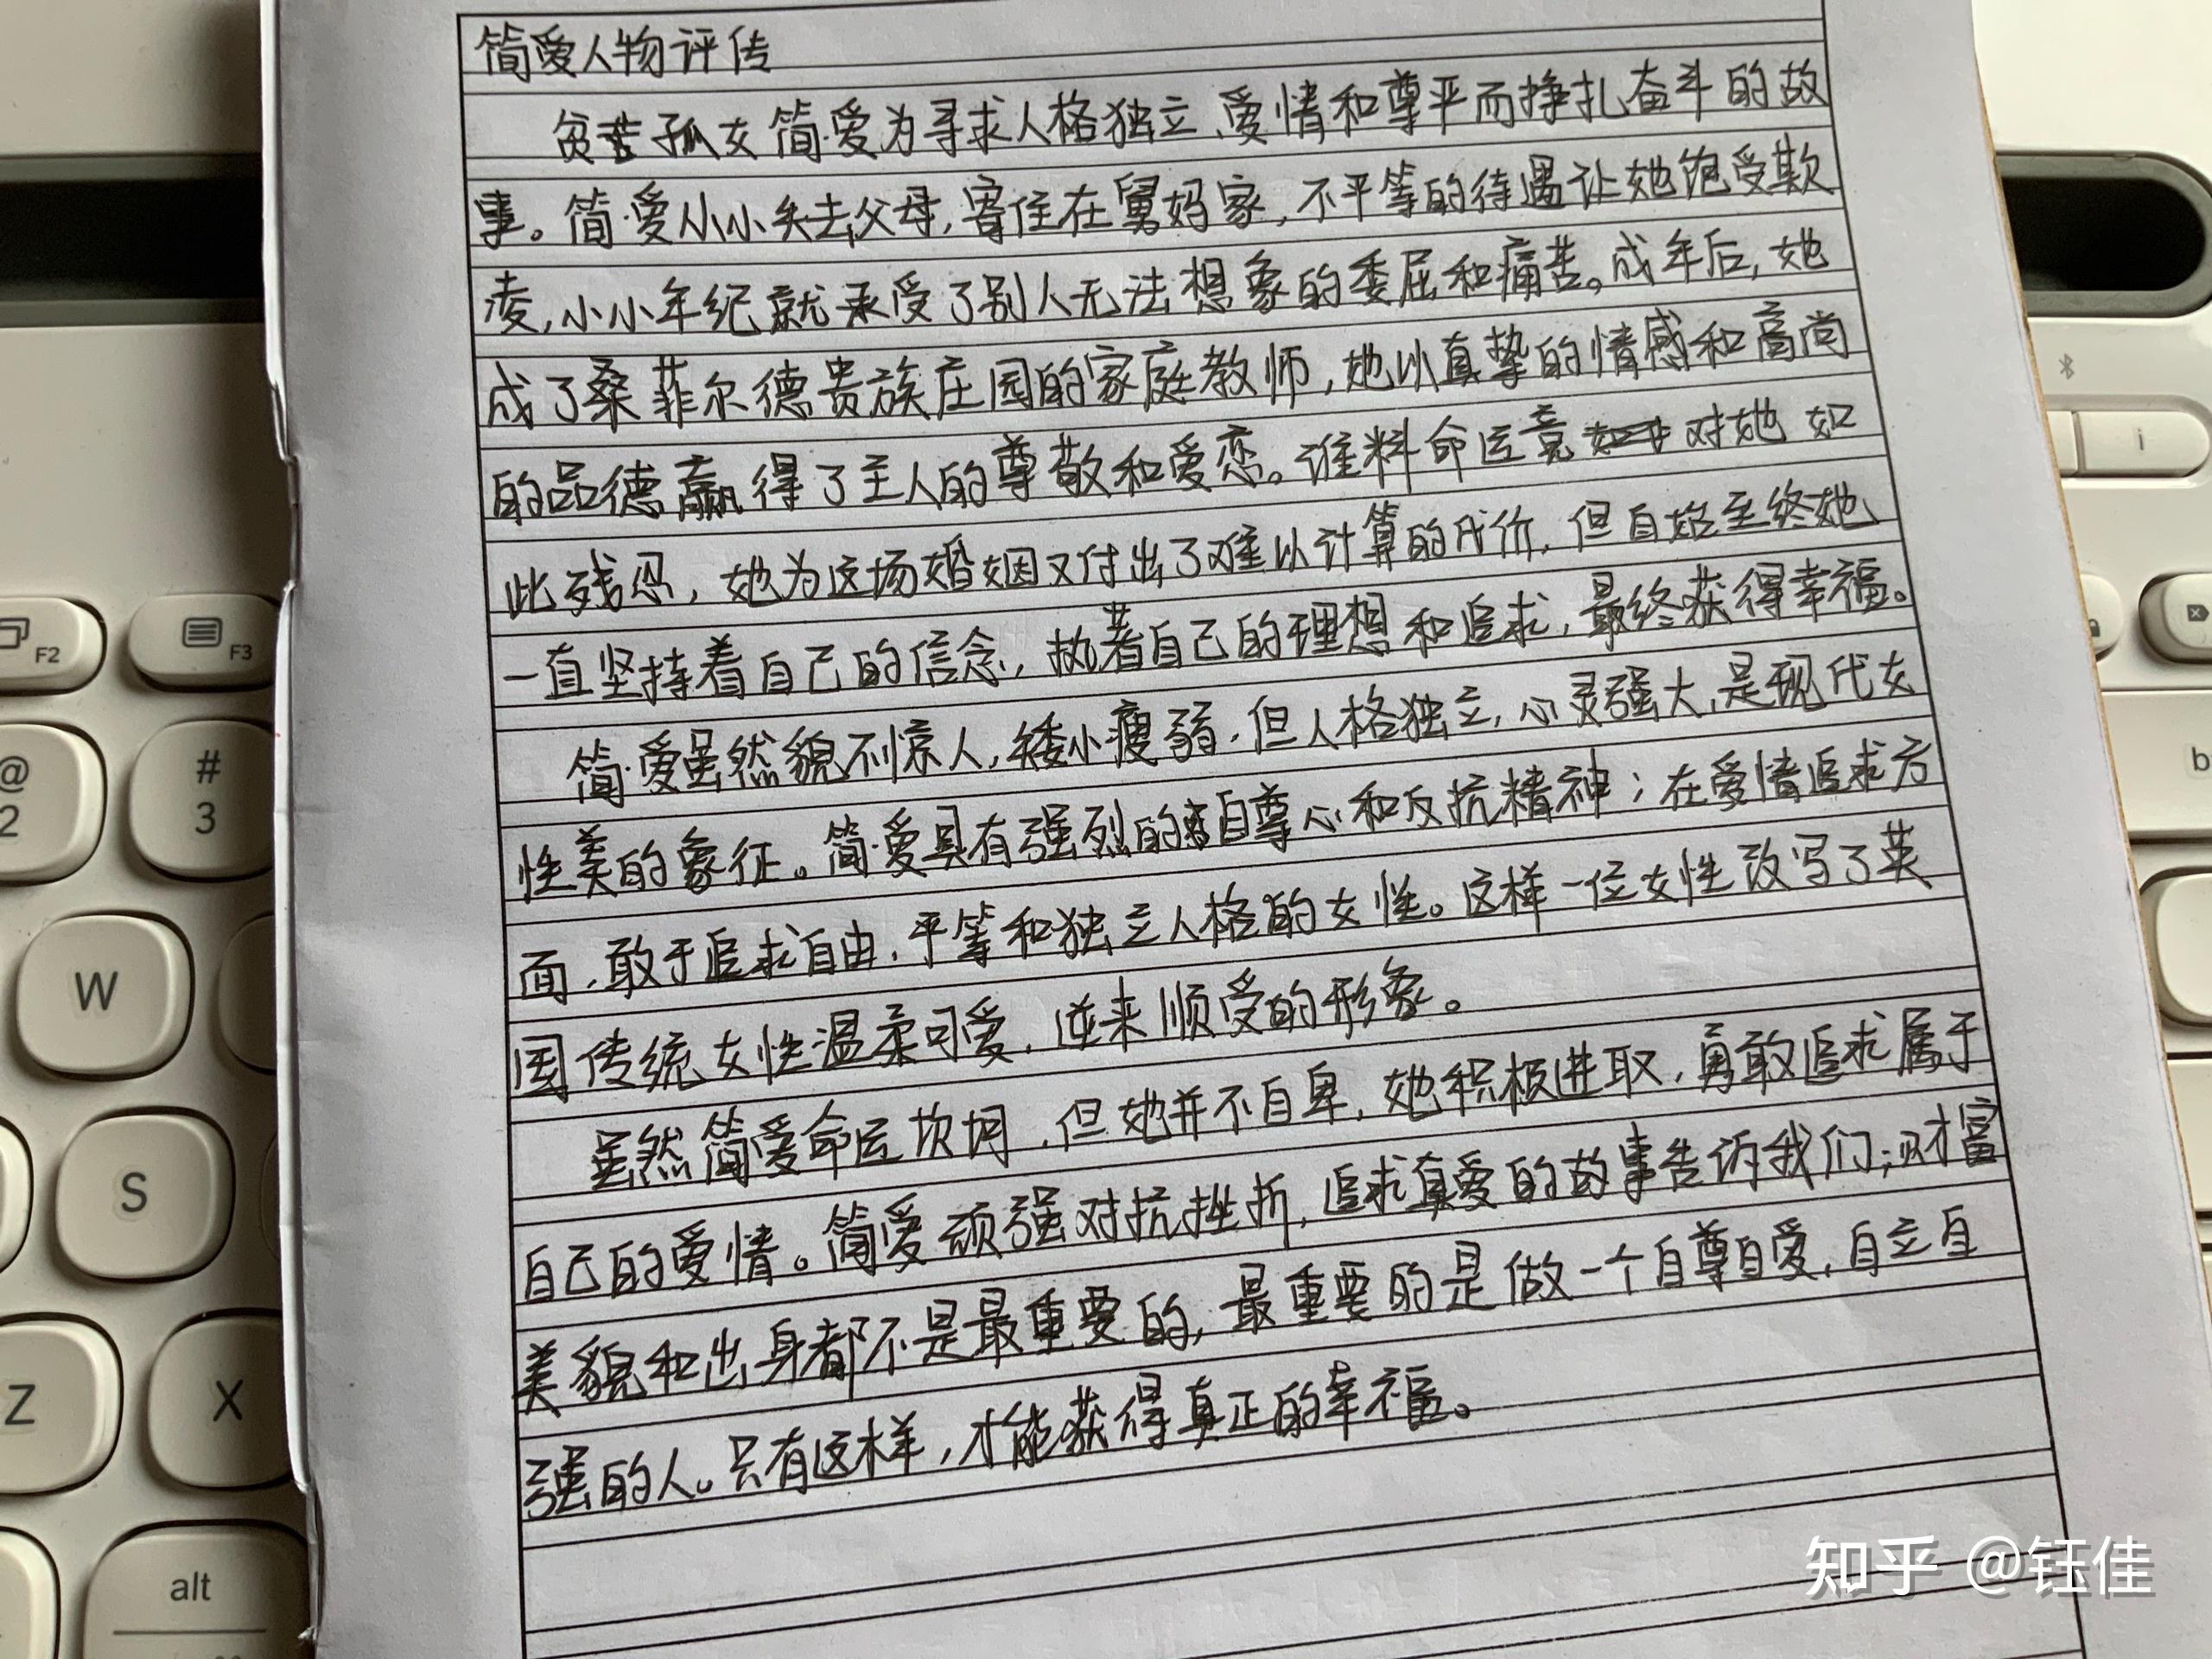 简爱人物评传
贫苦孤女简·爱为寻求人格独立、爱情和尊严而挣扎奋斗的故
事。简·爱从小失去父母,寄住在舅妈家,不平等的待遇让她饱受欺
凌,小小年纪就承受了别人无法想象的委屈和痛苦。成年后,她
成了桑菲尔德贵族庄园的家庭教师,她以真挚的情感和高尚
的品德赢得了主人的尊敬和爱恋。谁料命运竟对她如
此残忍,她为这场婚姻又付出了难以计算的代价,但自始至终她
一直坚持着自己的信念,执着自己的理想和追求,最终获得幸福。
简·爱虽然貌不惊人,矮小瘦弱,但人格独立,心灵强大,是现代女
性美的象征。简·爱具有强烈的自尊心和反抗精神;在爱情追求方
面,敢于追求自由,平等和独立人格的女性。这样一位女性改写了英
国传统女性温柔可爱,逆来顺受的形象。
虽然简爱命运坎坷,但她并不自卑,她积极进取,勇敢追求属于
自己的爱情。简爱顽强对抗挫折,追求真爱的故事告诉我们;财富
美貌和出身都不是最重要的,最重要的是做一个自尊自爱,自立自
强的人。只有这样,才能获得真正的幸福。
F2
F3
@
2
#
3
W
S
Z
X
alt
i
b
知乎 @钰佳